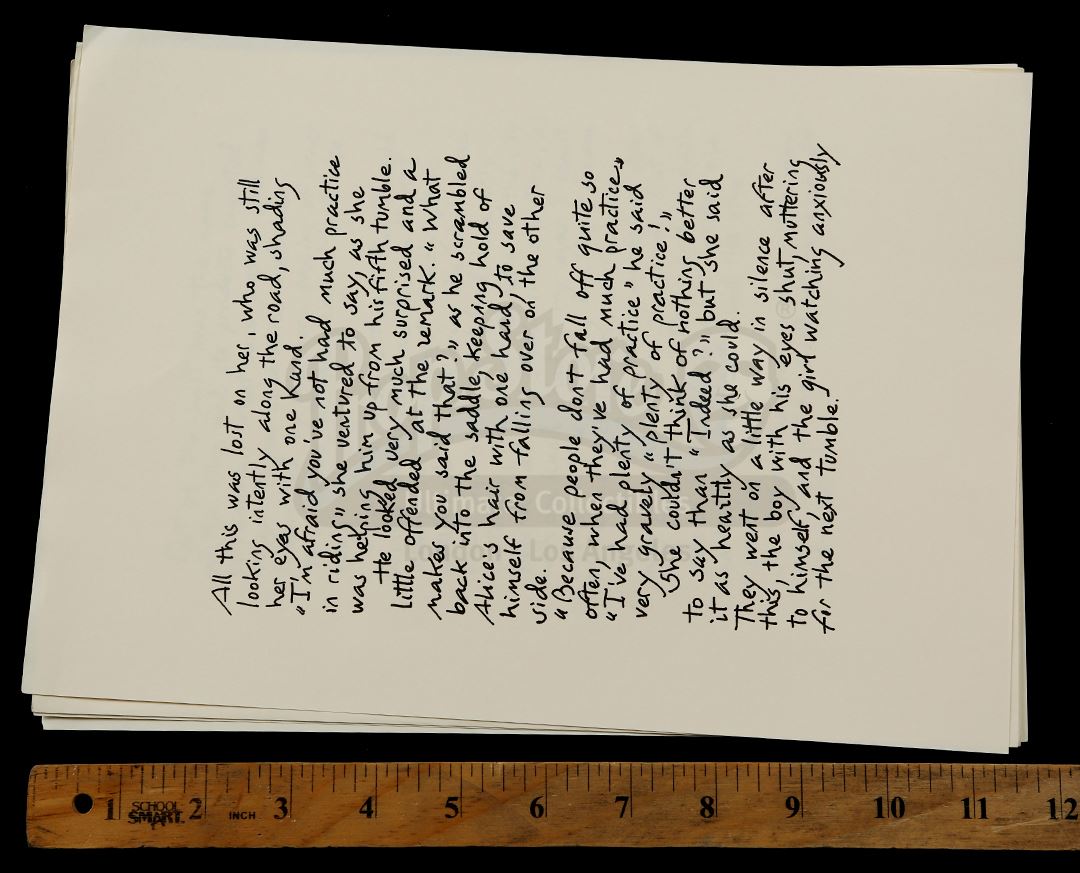 All this was lost on her, who was still
looking intently along the road, shading
her eyes with one hand.
"I'm afraid you've not had much practice
in riding" she ventured to say, as she
was helping him up from his fifth tumble.
He looked very much surprised and a
little offended at the remark. "What
makes you said that?" as he scrambled
back into the saddle, keeping hold of
Alice's hair with one hand, to save
himself from falling over on the other
side.
"Because people don't fall off quite so
often, when they've had much practice"
"I've had plenty of practice" he said
very gravely "plenty of practice!"
She couldn't think of nothing better
to say than "Indeed?" but she said
it as heartily as she could.
They went on a little way in silence after
this, the boy with his eyes shut, muttering
to himself, and the girl watching anxiously
for the next tumble.
Ultimate Collectibles
London - Los Angeles
®
1 SCHOOL SMART 2 INCH 3 4 5 6 7 8 9 10 11 12